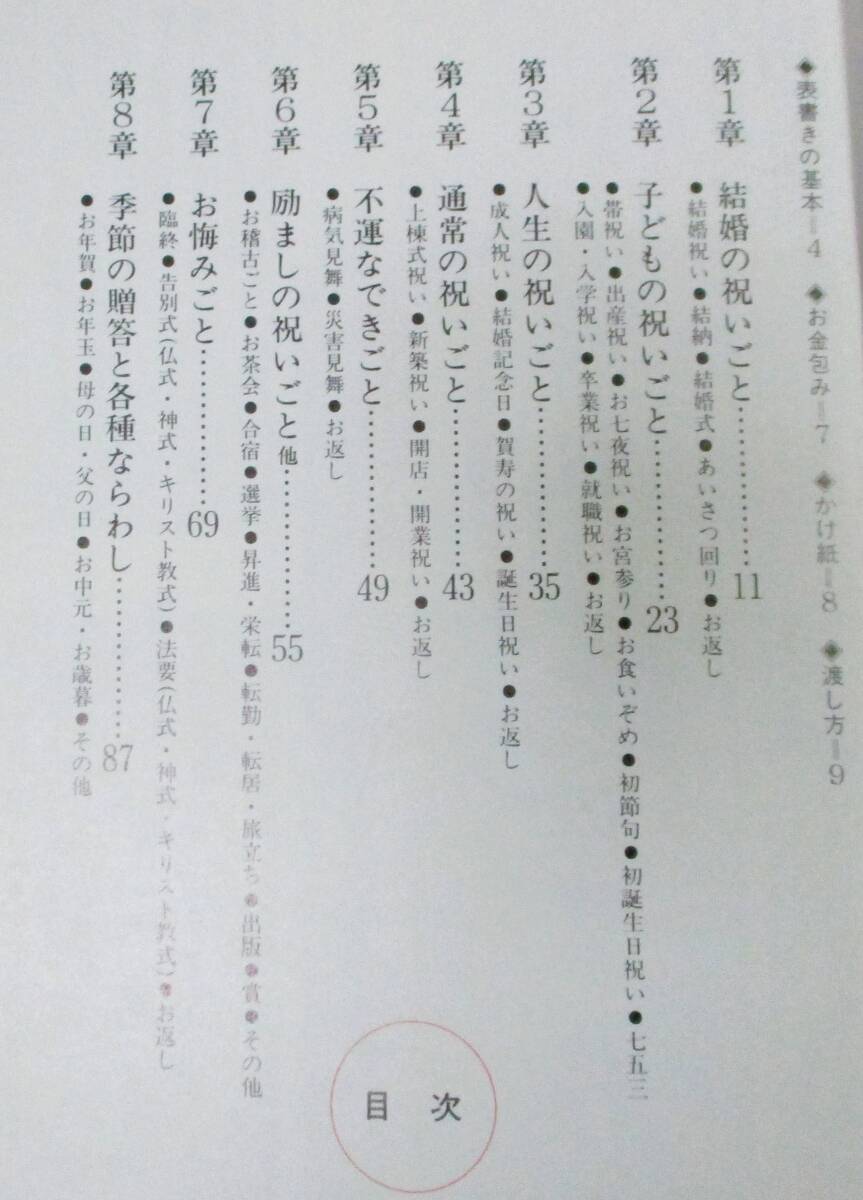 ◆表書きの基本=4 ◆お金包み=7 ◆かけ紙=8 ◆渡し方=9
第1章 結婚の祝いごと……………11
●結婚祝い●結納●結婚式●あいさつ回り●お返し
第2章 子どもの祝いごと……………23
●帯祝い●出産祝い●お七夜祝い●お宮参り●お食いぞめ●初節句●初誕生日祝い●七五三
●入園・入学祝い●卒業祝い●就職祝い●お返し
第3章 人生の祝いごと……………35
●成人祝い●結婚記念日●賀寿の祝い●誕生日祝い●お返し
第4章 通常の祝いごと……………43
●上棟式祝い●新築祝い●開店・開業祝い●お返し
第5章 不運なできごと……………49
●病気見舞●災害見舞●お返し
第6章 励ましの祝いごと他……………55
●お稽古ごと●お茶会●合宿●選挙●昇進・栄転●転勤・転居・旅立ち●出版●賞●その他
第7章 お悔みごと……………69
●臨終●告別式(仏式・神式・キリスト教式)●法要(仏式・神式・キリスト教式)●お返し
第8章 季節の贈答と各種ならわし……………87
●お年賀●お年玉●母の日・父の日●お中元・お歳暮●その他
目次